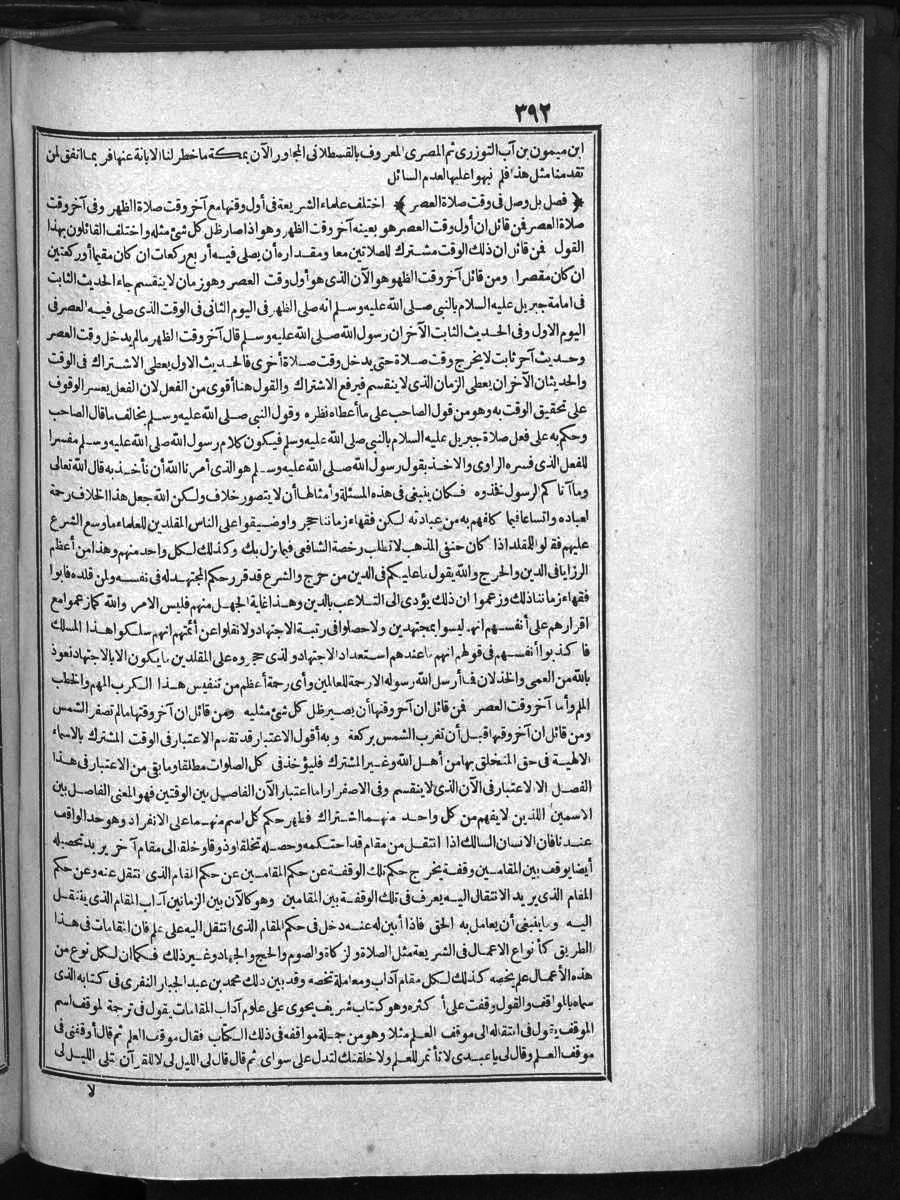 ٣٩٢
ابن ميمون بن آب التوزرى ثم المصرى المعروف بالقسطلانى المجاور الآن بمكة ما خطر لنا الابانة عنها فربما اتفق لمن
تقدمنا مثل هذا فلم ينبهوا عليها لعدم السائل
﴿ فصل بل وصل فى وقت صلاة العصر ﴾ اختلف علماء الشريعة فى أول وقتها مع آخر وقت صلاة الظهر وفى آخر وقت
صلاة العصر فمن قائل ان أول وقت العصر هو بعينه آخر وقت الظهر وهو اذا صار ظل كل شئ مثله واختلف القائلون بهذا
القول فمن قائل ان ذلك الوقت مشترك للصلاتين معا ومقداره أن يصلى فيه أربع ركعات ان كان مقيما أو ركعتين
ان كان مقصرا ومن قائل آخر وقت الظهر هو الآن الذى هو أول وقت العصر وهو زمان لا ينقسم جاء الحديث الثابت
فى امامة جبريل عليه السلام بالنبى صلى الله عليه وسلم انه صلى الظهر فى اليوم الثانى فى الوقت الذى صلى فيه العصر فى
اليوم الاول وفى الحديث الثابت الآخر ان رسول الله صلى الله عليه وسلم قال آخر وقت الظهر مالم يدخل وقت العصر
وحديث آخر ثابت لا يخرج وقت صلاة حتى يدخل وقت صلاة أخرى فالحديث الاول يعطى الاشتراك فى الوقت
والحديثان الآخران يعطى الزمان الذى لا ينقسم فيرفع الاشتراك والقول هنا أقوى من الفعل لان الفعل يعسر الوقوف
على تحقيق الوقت به وهو من قول الصاحب على ما أعطاه نظره وقول النبى صلى الله عليه وسلم يخالف ما قال الصاحب
وحكم به على فعل صلاة جبريل عليه السلام بالنبى صلى الله عليه وسلم فيكون كلام رسول الله صلى الله عليه وسلم مفسرا
للفعل الذى فسره الراوى والاخذ بقول رسول الله صلى الله عليه وسلم هو الذى أمرنا الله أن نأخذ به قال الله تعالى
وما آتاكم الرسول فخذوه فكان ينبغى فى هذه المسئلة وأمثالها أن لا يتصور خلاف ولكن الله جعل هذا الخلاف رحمة
لعباده واتساعا فيما كلفهم به من عبادته لكن فقهاء زماننا حجروا وضيقوا على الناس المقلدين للعلماء ما وسع الشرع
عليهم فقالوا للمقلد اذا كان حنفى المذهب لا تطلب رخصة الشافعى فيما نزل بك وكذلك لكل واحد منهم وهذا من أعظم
الرزايا فى الدين والحرج والله يقول ما عليكم فى الدين من حرج والشرع قد قرر حكم المجتهد له فى نفسه ولمن قلده فابوا
فقهاء زماننا ذلك وزعموا ان ذلك يؤدى الى التلاعب بالدين وهذا غاية الجهل منهم فليس الامر والله كما زعموا مع
اقرارهم على أنفسهم انهم ليسوا بمجتهدين ولا حصلوا فى رتبة الاجتهاد ولا نقلوا عن أئمتهم انهم سلكوا هذا المسلك
فاكذبوا أنفسهم فى قولهم انهم ما عندهم استعداد الاجتهاد والذى حجروه على المقلدين ما يكون الا بالاجتهاد نعوذ
بالله من العمى والخذلان فما أرسل الله رسوله الا رحمة للعالمين وأى رحمة أعظم من تنفيس هذا الكرب المهم والخطب
الملم وأما آخر وقت العصر فمن قائل ان آخر وقتها أن يصير ظل كل شئ مثليه ومن قائل ان آخر وقتها مالم تصفر الشمس
ومن قائل ان آخر وقتها قبل أن تغرب الشمس بركعة وبه أقول الاعتبار قد تقدم الاعتبار فى الوقت المشترك بالاسماء
الالهية فى حق المتخلق بها من أهل الله وغير المشترك فليؤخذ فى كل الصلوات مطلقا وما بقى من الاعتبار فى هذا
الفصل الا الاعتبار فى الآن الذى لا ينقسم وفى الاصفرار اما اعتبار الآن الفاصل بين الوقتين فهو المعنى الفاصل بين
الاسمين اللذين لا يفهم من كل واحد منهما اشتراك فظهر حكم كل اسم منهما على الانفراد وهو حد الواقف
عندنا فان الانسان السالك اذا انتقل من مقام قد احتكمه وحصله تخلقا وذوقا وخلقا الى مقام آخر يريد تحصيله
أيضا يوقف بين المقامين وقفة يخرج حكم تلك الوقفة عن حكم المقامين عن حكم المقام الذى انتقل عنه وعن حكم
المقام الذى يريد الانتقال اليه يعرف فى تلك الوقفة بين المقامين وهو كالآن بين الزمانين آداب المقام الذى ينتقل
اليه وما ينبغى أن يعامل به الحق فاذا أبين له عنه دخل فى حكم المقام الذى انتقل اليه على علم فان المقامات فى هذا
الطريق كأنواع الاعمال فى الشريعة مثل الصلاة والزكاة والصوم والحج والجهاد وغير ذلك فكما ان لكل نوع من
هذه الأعمال علم يخصه كذلك لكل مقام آداب ومعاملة تخصه وقد بين ذلك محمد بن عبد الجبار النفرى فى كتابه الذى
سماه بالمواقف والقول وقفت على أكثره وهو كتاب شريف يحوى على علوم آداب المقامات يقول فى ترجمة الموقف اسم
الموقف يقول فى انتقاله الى موقف العلم مثلا وهو من جملة مواقفه فى ذلك الكتاب فقال موقف العلم ثم قال أوقفنى فى
موقف العلم وقال لى يا عبدى لا تأتمر للعلم ولا خلقتك لتدل على سواى ثم قال قال لى الليل لى لا للقرآن يتلى الليل لى
لا